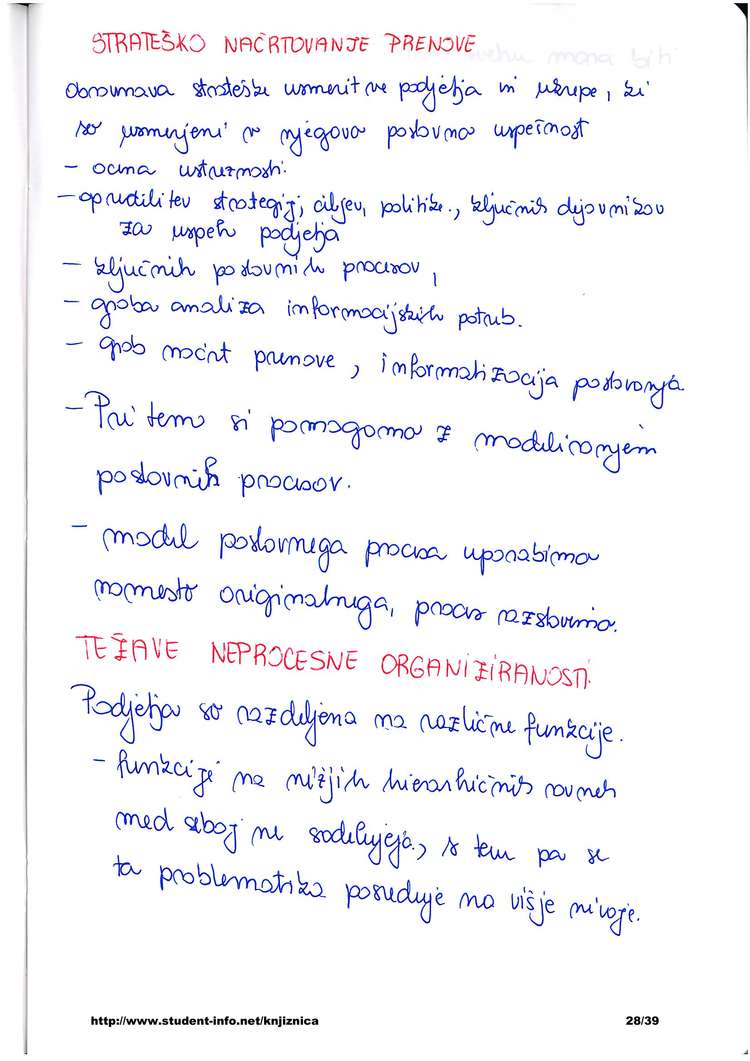 STRATEŠKO NAČRTOVANJE PRENOVE
Obravnava strateške usmeritve podjetja in ukrepe, ki
so usmerjeni v njegovo poslovno uspešnost
- ocena ustreznosti.
- opredelitev strategij, ciljev, politike., ključnih dejavnikov
za uspeh podjetja
- ključnih poslovnih procesov,
- groba analiza informacijskih potreb.
- grob načrt prenove, informatizacija poslovanja
- Pri temo si pomagamo z modeliranjem
poslovnih procesov.
- model poslovnega procesa uporabimo
namesto originalnega, proces razstavimo.
TEŽAVE NEPROCESNE ORGANIZIRANOSTI.
Podjetja so razdeljena na različne funkcije.
- funkcije na nižjih hierarhičnih ravneh
med seboj ne sodelujejo, s tem pa se
ta problematika posreduje na višje nivoje.
http://www.student-info.net/knjiznica 28/39